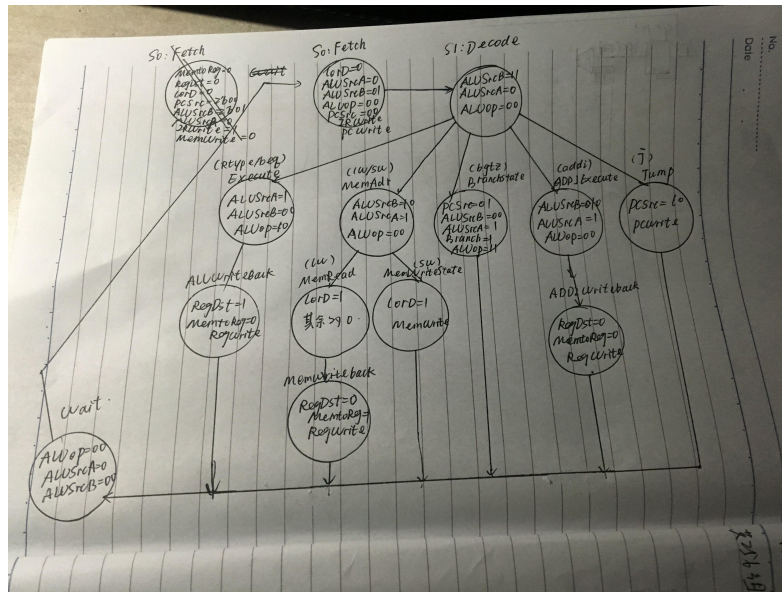 No.
Date
S0:Fetch
MemtoReg=0
RegDst=0
IorD=0
ALUSrcA=0
MemWrite=0
S0:Fetch
IorD=0
ALUSrcA=0
ALUSrcB=01
ALUop=00
PCSrc=00
IRWrite
PCWrite
S1:Decode
ALUSrcB=11
ALUSrcA=0
ALUop=00
(Rtype/beq)
Execute
ALUSrcA=1
ALUSrcB=00
ALUop=10
(lw/sw)
MemAdr
ALUSrcB=10
ALUSrcA=1
ALUop=00
(bgtz)
BranchState
PCSrc=01
ALUSrcB=00
ALUSrcA=1
Branch=1
ALUop=11
(addi)
ADDIExecute
ALUSrcB=10
ALUSrcA=1
ALUop=00
(j)
Jump
PCSrc=10
pcwrite
ALUWriteBack
RegDst=1
MemtoReg=0
RegWrite
(lw)
MemRead
IorD=1
(sw)
MemWriteState
IorD=1
MemWrite
ADDIWriteback
RegDst=0
MemtoReg=0
RegWrite
MemWriteback
RegDst=0
MemtoReg=1
RegWrite
Wait.
ALUop=00
ALUSrcA=0
ALUSrcB=00